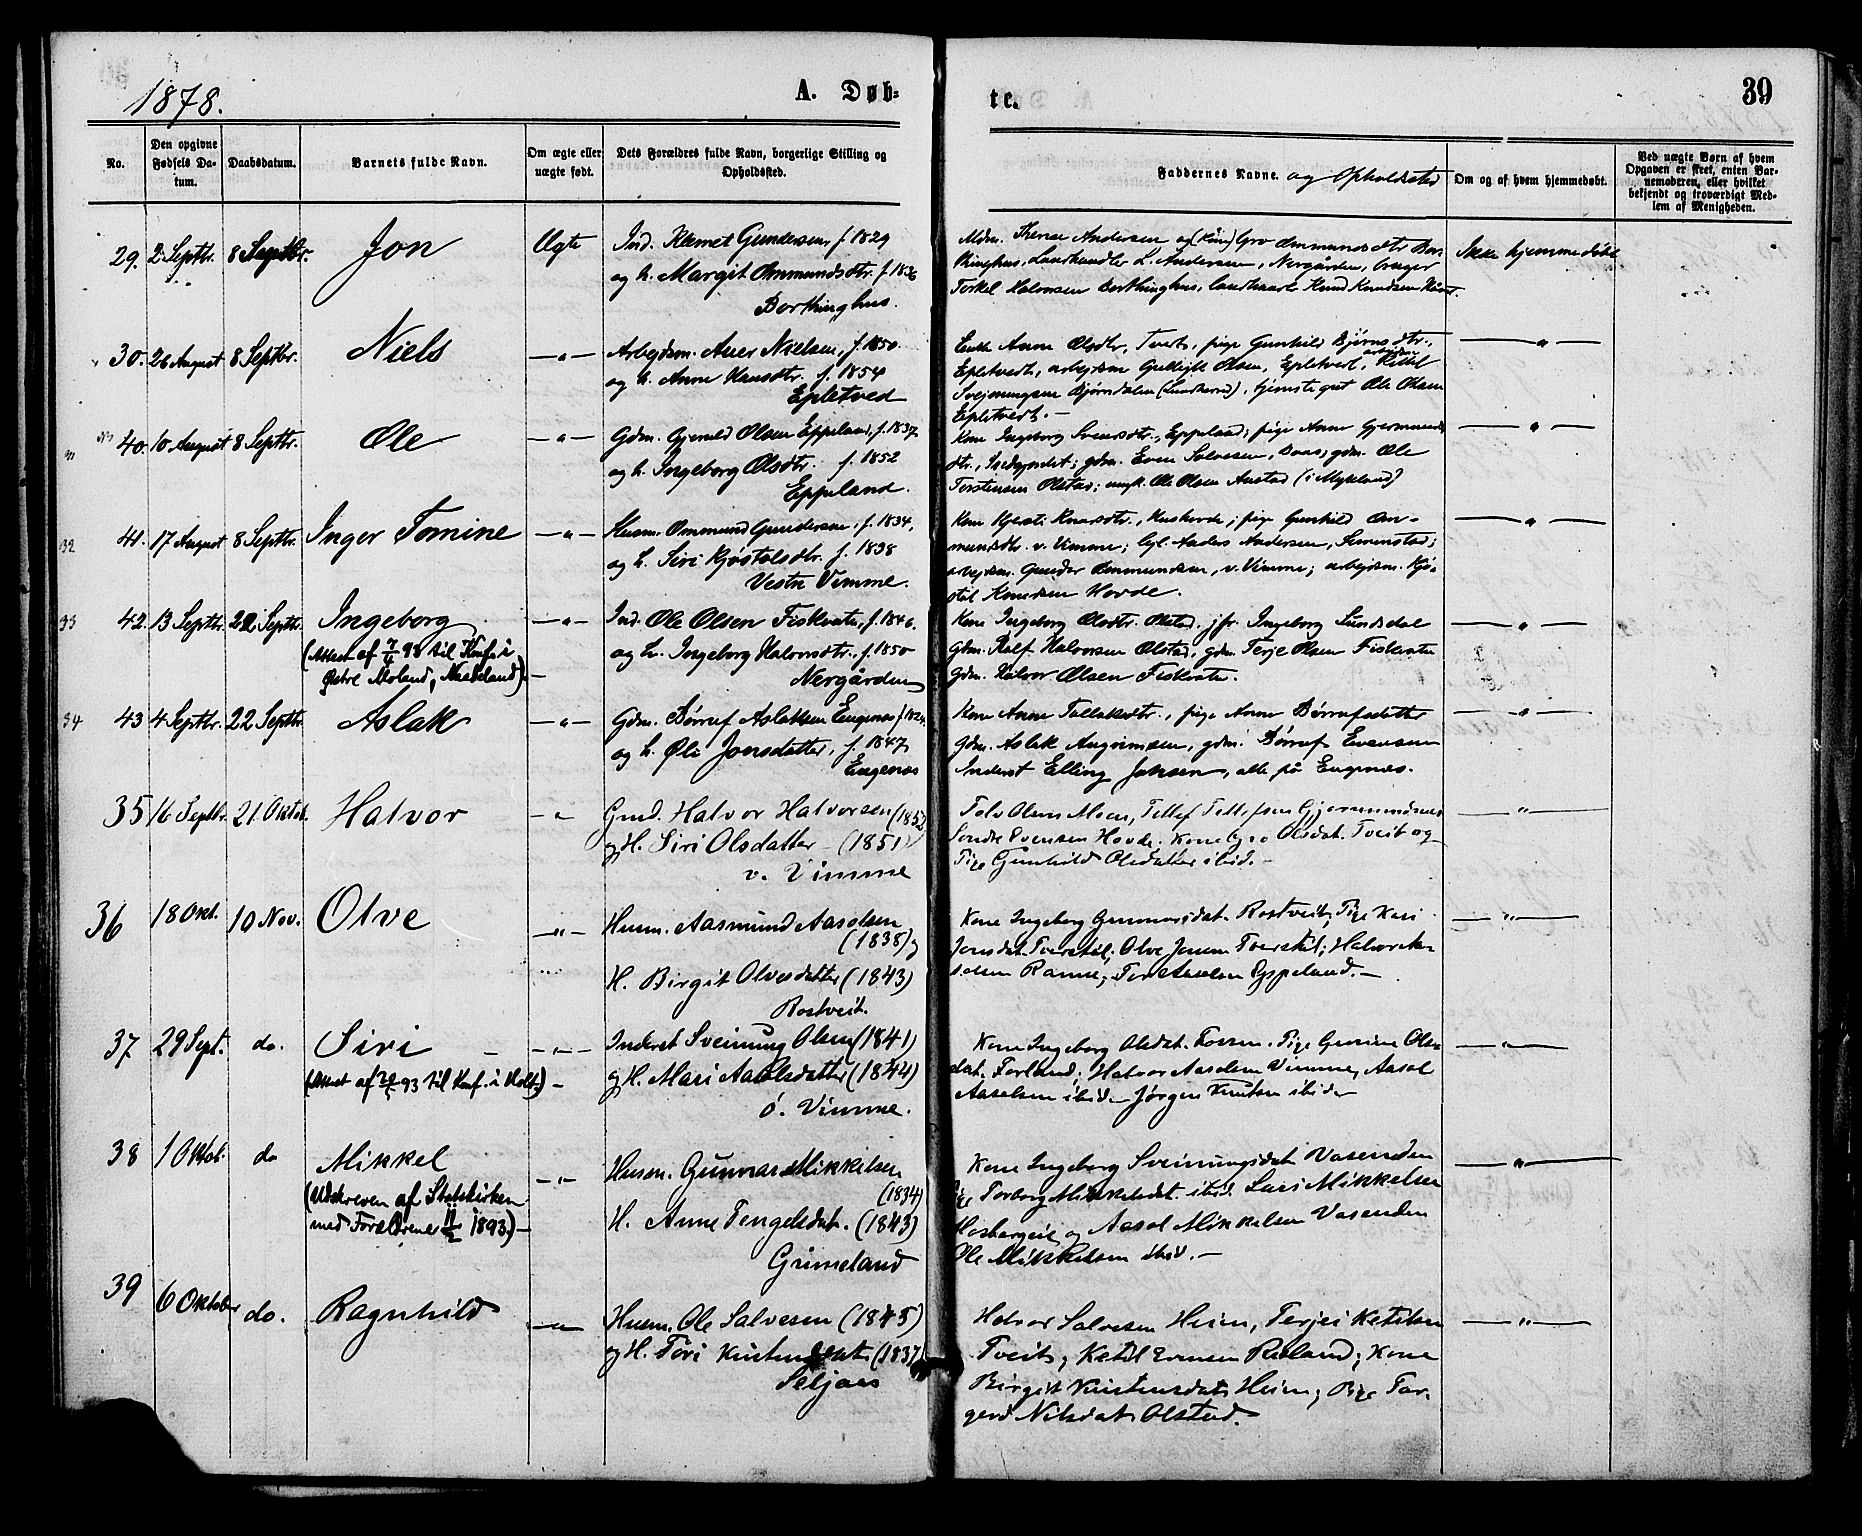 1878.
A. Døb=
te.
39
No.
Den opgivne
Fødsels Da-
tum.
Daabsdatum.
Barnets fulde Navn.
Om ægte eller
uægte født.
Dets Forældres fulde Navn, borgerlige Stilling og
Opholdssted.
Faddernes Navne. og Opholdssted
Om og af hvem hjemmedøbt.
Ved uægte Børn af hvem
Opgaven er skeet, enten Bar-
nemoderen, eller hvilket
bekjendt og troværdigt Med-
lem af Menigheden.
29. 2 Septbr. 8 Septbr. Jon Ægte
Ind. Klemet Gundersen, f. 1829
og h. Margit Ommundsdtr. f. 1836
Borthinghus.
Andersen og Gro Ommundsdtr
Landhandler L. Andersen, Nergården, bruger
Torkel Halvorsen Borthinghus, Knud Knudsen
Ikke hjemmedøbt
30. 26 August 8 Septbr. Niels — " —
Arbejdsm. Nielsen, f. 1850
og h. Anne Hansdtr. f. 1854
Epletved
Enke Anne Olsdtr, Tveit, pige Gunhild Bjørnsdtr.,
Epletvedt, arbejdsm Gulleik Olsen, Epletvedt, arbejdsm. Kittel
Bjørnsdalen, tjenstegut Ole Olsen
Epletvedt. —
— " —
31
40. 10 August 8 Septbr. Ole — " —
Gdm. Gjeruld Olsen Eppeland, f. 1837
og h. Ingeborg Olsdtr. f. 1852
Eppeland.
Kone Ingeborg Svensdtr., Eppeland; pige Anne Gjermunds
dtr., gdm. Even Salvesen, Boas; gdm. Ole
Torstensen Olstad; ungk. Ole Olsen Austad (i Mykland)
— " —
32
41. 17 August 8 Septbr. Inger Tomine — " —
Husm. Ommund Gundersen, f. 1834,
og h. Siri Kjøstolsdtr. f. 1838
Vestre Vimme.
Kone Kjersti Knudsdtr., Hovde; pige Gunhild Om-
mundsdtr. v. Vimme; Anders Andersen, Simenstad;
arbejdsm. Gunder Ommundsen, v. Vimme; arbejdsm. Kjø-
stol Knudsen Hovde.
— " —
33
42. 13 Septbr. 22 Septbr. Ingeborg — " —
(Attest af 7/4 93 til Konf. i
Østre Moland, Nedeland). —
Ind. Ole Olsen Fiskvatn, f. 1846.
og h. Ingeborg Halvorsdtr., f. 1850
Nergården
Kone Ingeborg Olsdtr. Olstad. jfr. Ingeborg Sundsdal
gdm. Rolf Halvorsen Olstad, gdm. Terje Olsen Fiskvatn
gdm. Halvor Olsen Fiskvatn.
— " —
34
43 4 Septbr. 22 Septbr. Aslak — " —
Gdm. Børruf Aslaksen Eugenæs f. 1824
og h. Øli Jonsdatter, f. 1847
Eugenæs
Kone Anne Tallaksdtr., pige Anne Børrufsdatter
gdm. Aslak Angrimsen, gdm. Børruf Evensen
Inderst Elling Johsen, alle på Eugenæs.
— " —
35 16 Septbr. 21. Oktob. Halvor — " —
Gmd. Halvor Halvorsen (1852)
og H. Siri Olsdatter — (1851)
v. Vimme
Tolv Olsen Moen, Tellef Tellefsen Gjermundnes
Sondre Evensen Hovde. Kone Gro Olsdat. Tveit og
Pige Gunhild Olsdatter ibid. —
— " —
36 18 Okt. 10 Nov. Olve — " —
Husm. Aasmund Aasolsen
(1838) og
H. Birgit Olvesdatter (1843)
Rostveit.
Kone Ingeborg Gunnarsdat. Rostveit; Pige Kari
Jonsdat. Tverstøl; Olve Jensen Tverstøl; Halvor
Ramse, Tor Aasolsen Eppeland. —
— " —
37 29 Sept. do. Siri — — " —
(Attest af 93 til Konf. i Holt) —
Inderst Sveinung Olsen (1841)
og H. Mari Aasolsdatter (1844)
ø. Vimme.
Kone Ingeborg Olsdat. Fossen. Pige Gurine Ols-
dat. Forland; Halvor Aasolsen Vimme, Aasol
Aaselsen ibid — Jørgen Knutsen ibid —
— " —
38 1 Oktob. do Mikkel — " —
(Udskreven af Statskirken
med Forældrene 11/2 1893.) —
Husm. Gunnar Mikkelsen
(1834)
H. Anne Tengelsdat. (1843)
Grimeland
Kone Ingeborg Sveinungsdat Vasenden
Pige Torborg Mikkelsdat. ibid. Lars Mikkelsen
og Aasol Mikkelsen Vasenden
Ole Mikkelsen ibid. —
— " —
39 6 Oktober do. Ragnhild — " —
Husm. Ole Salvesen (1845)
og H. Tøri Kristensdat (1837)
Seljaas
Halvor Salvesen Heim, Terjei Ketilsen
Tveit, Ketil Evensen Risland; Kone
Birgit Kristensdat Heim; Pige Tor-
gerd Nilsdat. Olstad.
— " —